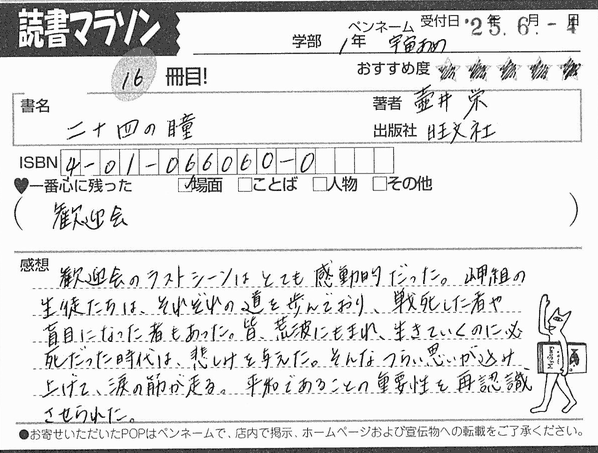 読書マラソン
学部 1年 ペンネーム 宇宙おめ 受付日 '25. 6. -4
16 冊目!
おすすめ度 ★★★★★
書名 二十四の瞳
著者 壷井 栄
出版社 旺文社
ISBN 4-01-066060-0
♥一番心に残った ☑場面 □ことば □人物 □その他
( 歓迎会 )
感想
歓迎会のラストシーンはとても感動的だった。岬組の
生徒たちは、それぞれの道を歩んでおり、戦死した者や
盲目になった者もあった。皆、荒波にもまれ、生きていくのに必
死だった時代は、悲しみを与えた。そんなつらい思いが込み
上げて、涙の筋が走る。平和であることの重要性を再認識
させられた。
●お寄せいただいたPOPはペンネームで、店内で掲示、ホームページおよび宣伝物への転載をご了承ください。